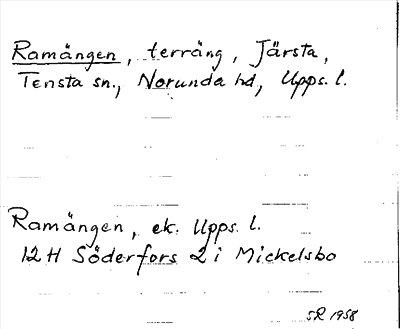 Ramängen, terräng, Järsta,
Tensta sn., Norunda hd, Upps. l.
Ramängen, ek. Upps. l.
12H Söderfors 2 i Mickelsbo
SR 1958